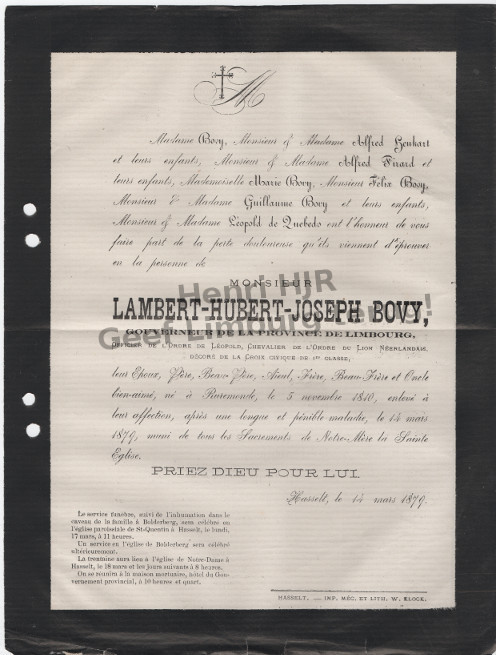 M
Madame Bovy, Monsieur & Madame Alfred Henkart
et leurs enfants, Monsieur & Madame Alfred Firard et
leurs enfants, Mademoiselle Marie Bovy, Monsieur Félix Bovy,
Monsieur & Madame Guillaume Bovy et leurs enfants,
Monsieur & Madame Léopold de Quebedo ont l'honneur de vous
faire part de la perte douloureuse qu'ils viennent d'éprouver
en la personne de
MONSIEUR
LAMBERT-HUBERT-JOSEPH BOVY,
GOUVERNEUR DE LA PROVINCE DE LIMBOURG,
OFFICIER DE L'ORDRE DE LÉOPOLD, CHEVALIER DE L'ORDRE DU LION NÉERLANDAIS,
DÉCORÉ DE LA CROIX CIVIQUE DE 1re CLASSE,
leur Epoux, Père, Beau-Père, Aïeul, Frère, Beau-Frère et Oncle
bien-aimé, né à Ruremonde, le 5 novembre 1810, enlevé à
leur affection, après une longue et pénible maladie, le 14 mars
1879, muni de tous les Sacrements de Notre-Mère la Sainte
Eglise.
PRIEZ DIEU POUR LUI.
Hasselt, le 14 mars 1879.
Le service funèbre, suivi de l'inhumation dans le
caveau de la famille à Bolderberg, sera célébré en
l'église paroissiale de St-Quentin à Hasselt, le lundi,
17 mars, à 11 heures.
Un service en l'église de Bolderberg sera célébré
ultérieurement.
La trentaine aura lieu à l'église de Notre-Dame à
Hasselt, le 18 mars et les jours suivants à 8 heures.
On se réunira à la maison mortuaire, hôtel du Gou-
vernement provincial, à 10 heures et quart.
HASSELT. — IMP. MÉC. ET LITH. W. KLOCK.
Henri HJR